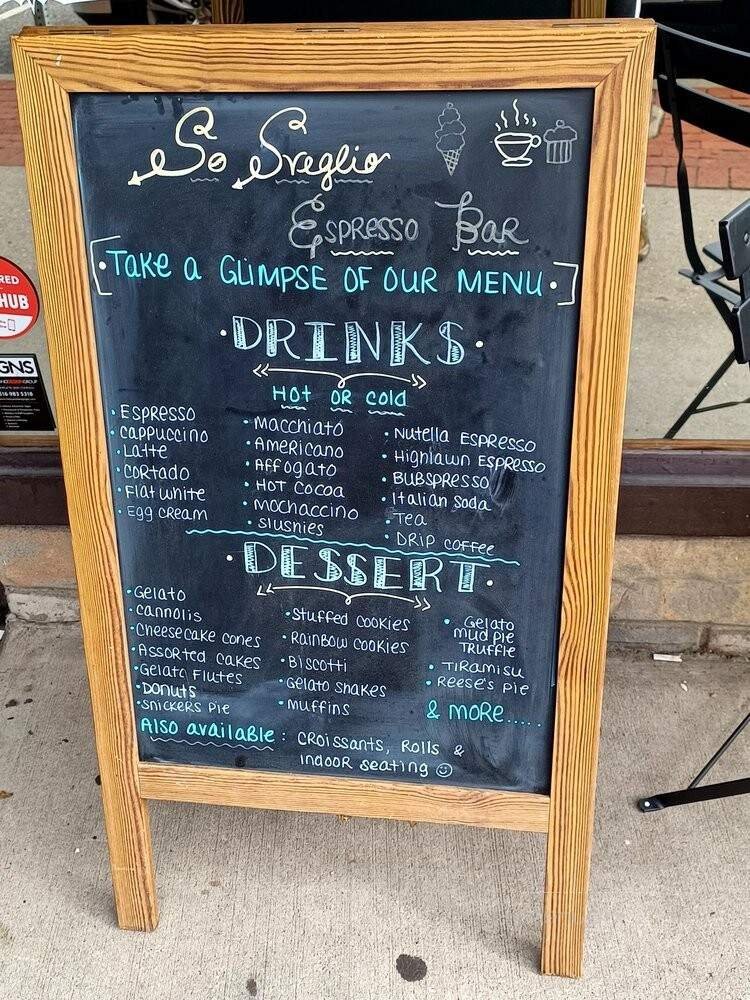 So Sveglio
Espresso Bar
[·Take a GLIMPSE OF OUR MENU·]
·DRINKS·
Hot or cold
· ESPRESSO
· cappuccino
· Latte
· cortado
· Flat white
· Egg cream
· Macchiato
· Americano
· Affogato
· Hot cocoa
· mochaccino
· slushies
· Nutella Espresso
· Highlawn Espresso
· BUBSPRESSO
· Italian soda
· Tea
· DRIP coffee
·DESSERT·
· Gelato
· cannolis
· Cheesecake cones
· Assorted cakes
· Gelato Flutes
· Donuts
· Snickers Pie
· Stuffed cookies
· Rainbow cookies
· Biscotti
· Gelato shakes
· muffins
· Gelato
mud pie
Truffle
· Tiramisu
· Reese's pie
& more.....
Also available: croissants, Rolls &
indoor seating ☺
RED
HUB
GNS